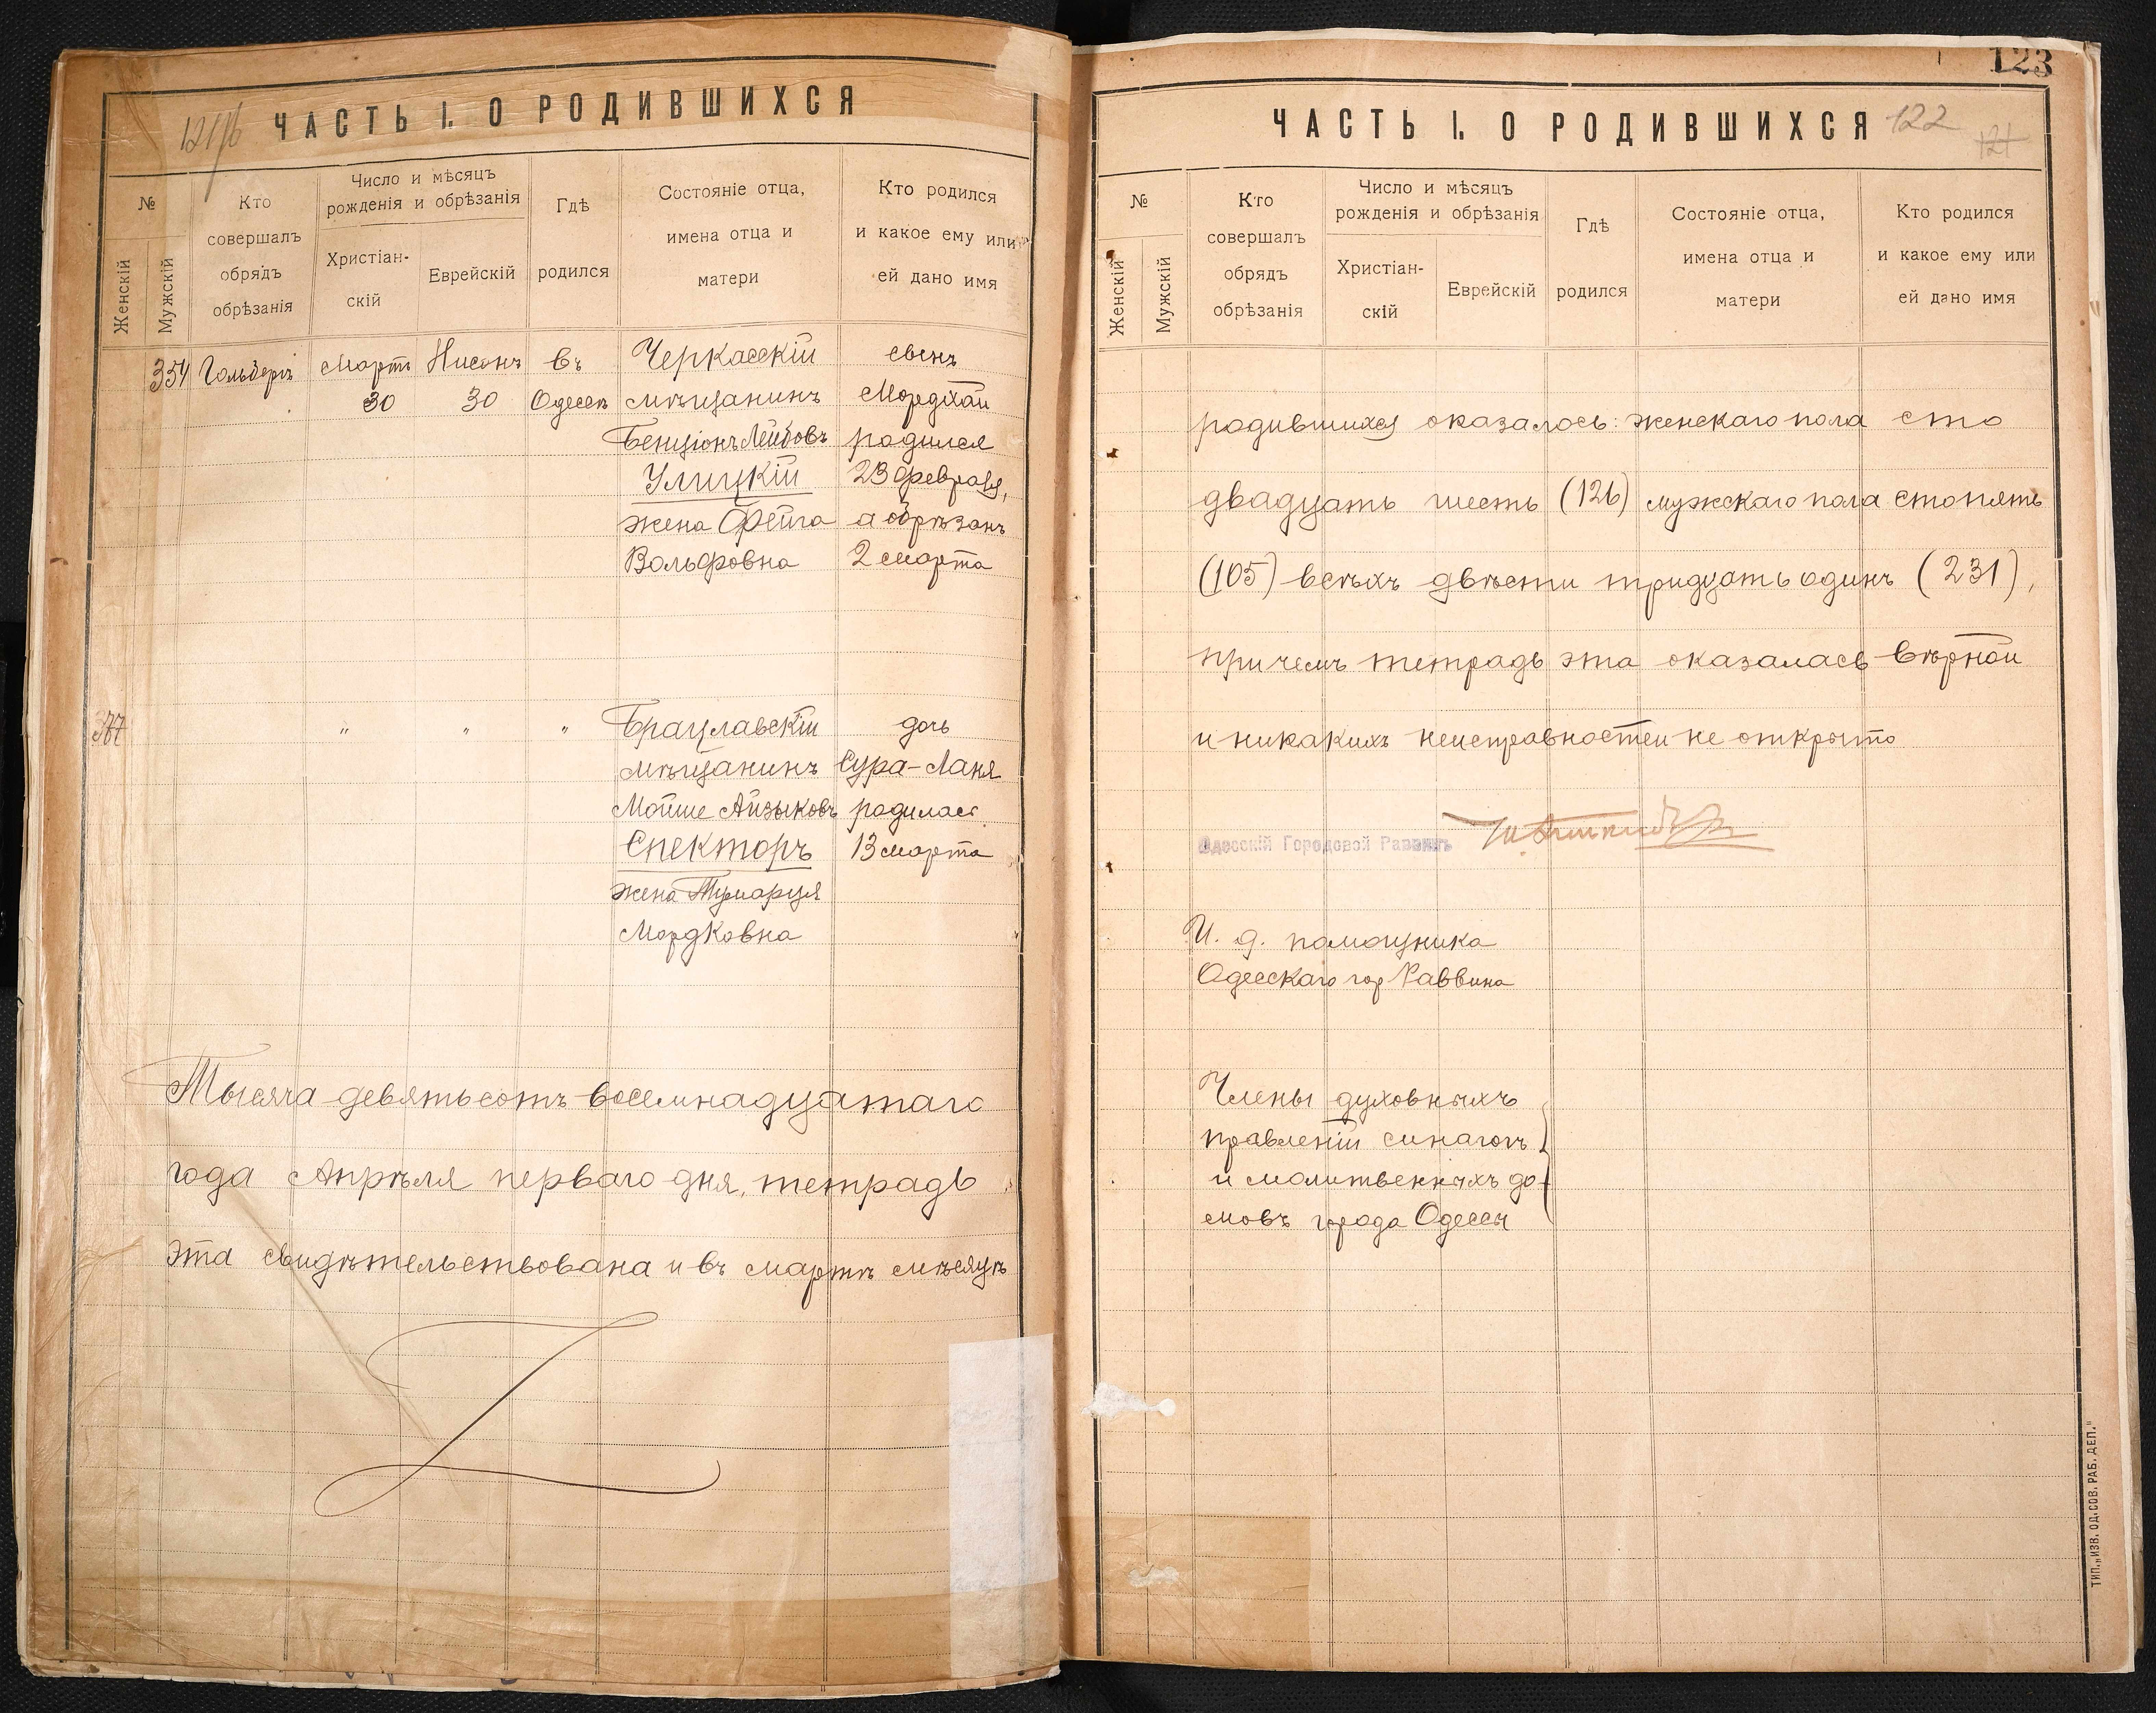 ЧАСТЬ I. О РОДИВШИХСЯ
№
Женскій
Мужскій
Кто
совершалъ
обрядъ
обрѣзанія
Число и мѣсяцъ
рожденія и обрѣзанія
Христіан-
скій
Еврейскій
Гдѣ
родился
Состояніе отца,
имена отца и
матери
Кто родился
и какое ему или
ей дано имя
354 Гольберг Мартъ Нисонъ въ Черкасскій сынъ
30 30 Одессѣ мѣщанинъ Мордхай
Бенціонъ Лейбовъ родился
Улицкій 23 февраля,
жена Фейга а обрѣзанъ
Вольфовна 2 марта
377 " " " Брацлавскій дочь
мѣщанинъ Сура-Ланя
Мойше Айзыковъ родилась
Спекторъ 13 марта
жена
Мордковна
Тысяча девятьсотъ восемнадцатаго
года Апрѣля перваго дня, тетрадь
эта свидѣтельствована и въ мартѣ мѣсяцѣ
123
ЧАСТЬ I. О РОДИВШИХСЯ 122
121
№
Женскій
Мужскій
Кто
совершалъ
обрядъ
обрѣзанія
Число и мѣсяцъ
рожденія и обрѣзанія
Христіан-
скій
Еврейскій
Гдѣ
родился
Состояніе отца,
имена отца и
матери
Кто родился
и какое ему или
ей дано имя
родившихся оказалось: женскаго пола сто
двадцать шесть (126) мужскаго пола сто пять
(105) всѣхъ двѣсти тридцать одинъ (231),
причемъ тетрадь эта оказалась вѣрной
и никакихъ неисправностей не открыто
Одесскій Городовой Раввинъ
И. д. помощника
Одесскаго гор Раввина
Члены духовныхъ
правленій синагогъ
и молитвенныхъ до-
мовъ города Одессы
ТИП. „ИЗВ. ОД. СОВ. РАБ. ДЕП."